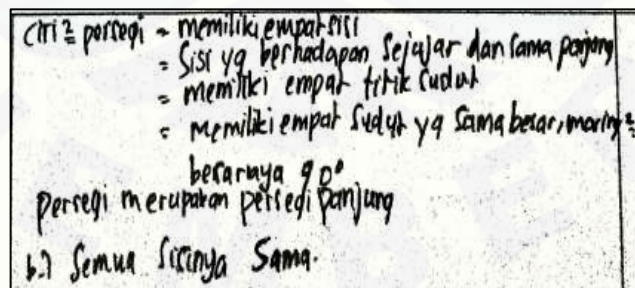 Ciri² persegi = memiliki empat sisi
= Sisi yg berhadapan Sejajar dan sama panjang
= memiliki empat titik sudut
= memiliki empat sudut yg sama besar, masing²
besarnya 90°
persegi merupakan persegi panjang
b.) Semua Sisinya Sama.